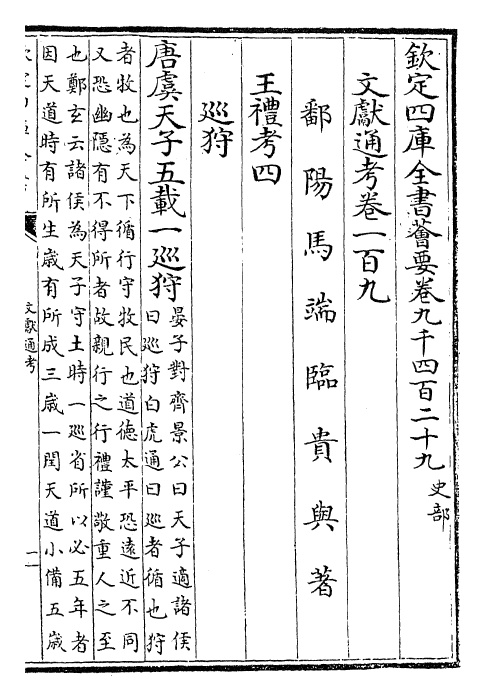 欽定四庫全書薈要卷九千四百二十九 史部
文獻通考卷一百九
鄱陽馬端臨貴與著
王禮考四
巡狩
唐虞天子五載一巡狩
晏子對齊景公曰天子適諸侯
曰巡狩白虎通曰巡者循也狩
者牧也為天下循行守牧民也道德太平恐遠近不同
又恐幽隱有不得所者故親行之行禮謹敬重人之至
也鄭玄云諸侯為天子守土時一巡省所以必五年者
因天道時有所生歲有所成三歲一閏天道小備五歲
文獻通考
一